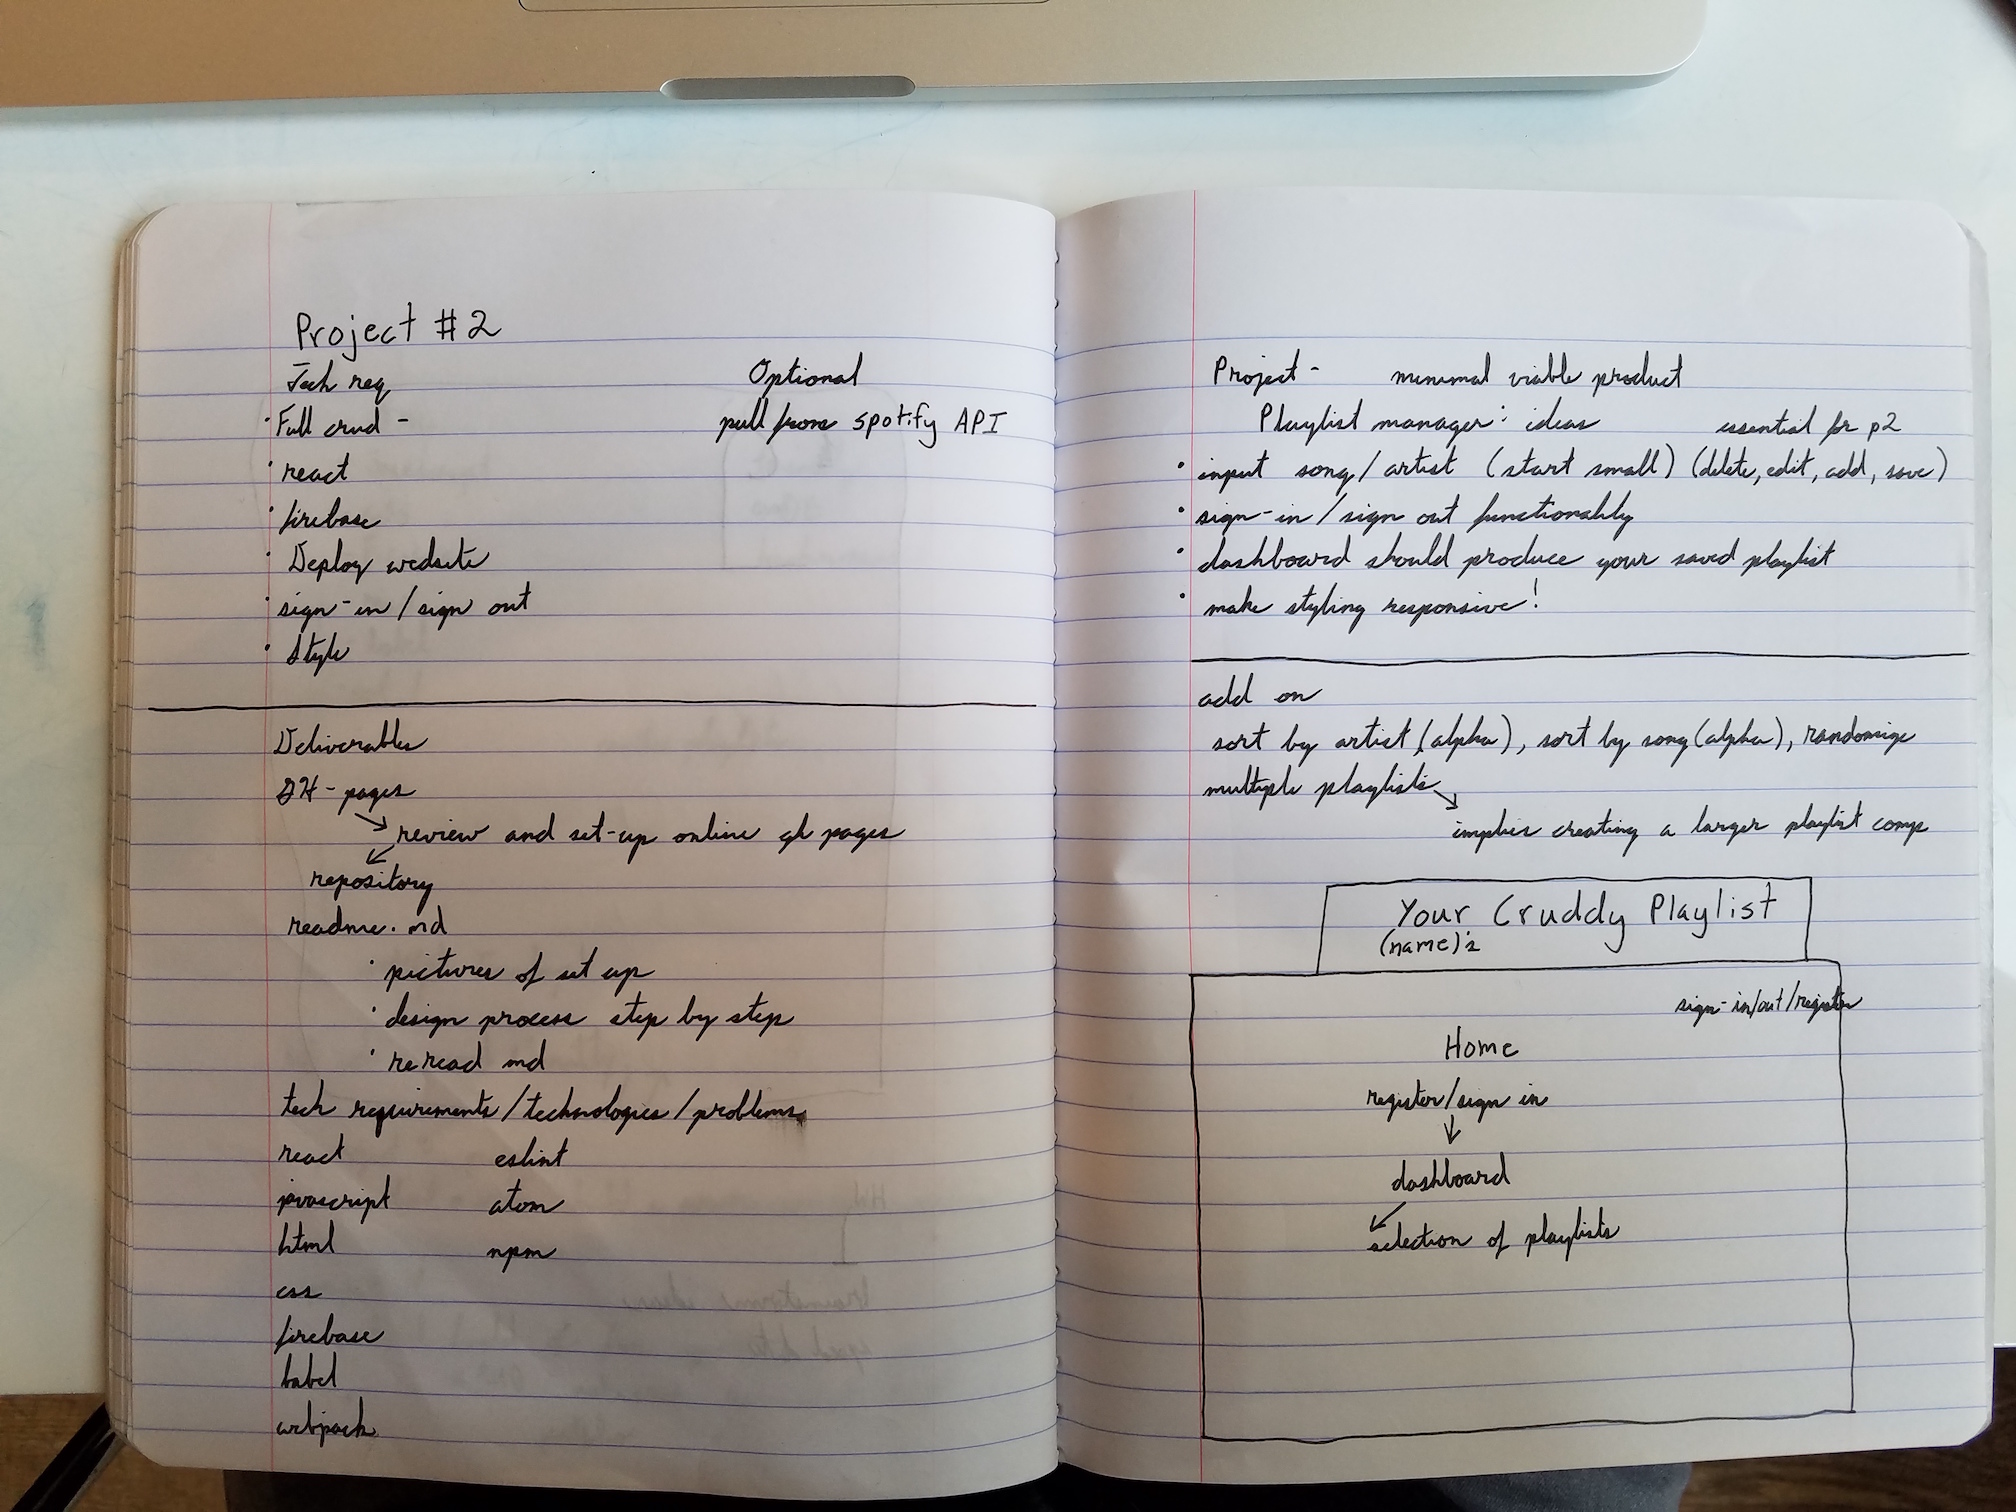 Project #2
Tech req
Optional
· Full crud -
pull from spotify API
· react
· firebase
· Deploy website
· sign-in / sign out
· Style
Deliverables
GH - pages
↘ review and set-up online gh pages
↙
repository
readme. md
· pictures of set up
· design process step by step
· reread md
tech requirements / technologies / problems
react eslint
javascript atom
html npm
css
firebase
babel
webpack
Project - minimal viable product
Playlist manager : ideas essential for p2
· input song / artist (start small) (delete, edit, add, save)
· sign-in / sign out functionality
· dashboard should produce your saved playlist
· make styling responsive!
add on
sort by artist (alpha), sort by song (alpha), randomize
multiple playlists ↘
implies creating a larger playlist comp
Your Cruddy Playlist
(name)'s
sign-in/out/register
Home
register/sign in
↓
dashboard
↙
selection of playlists